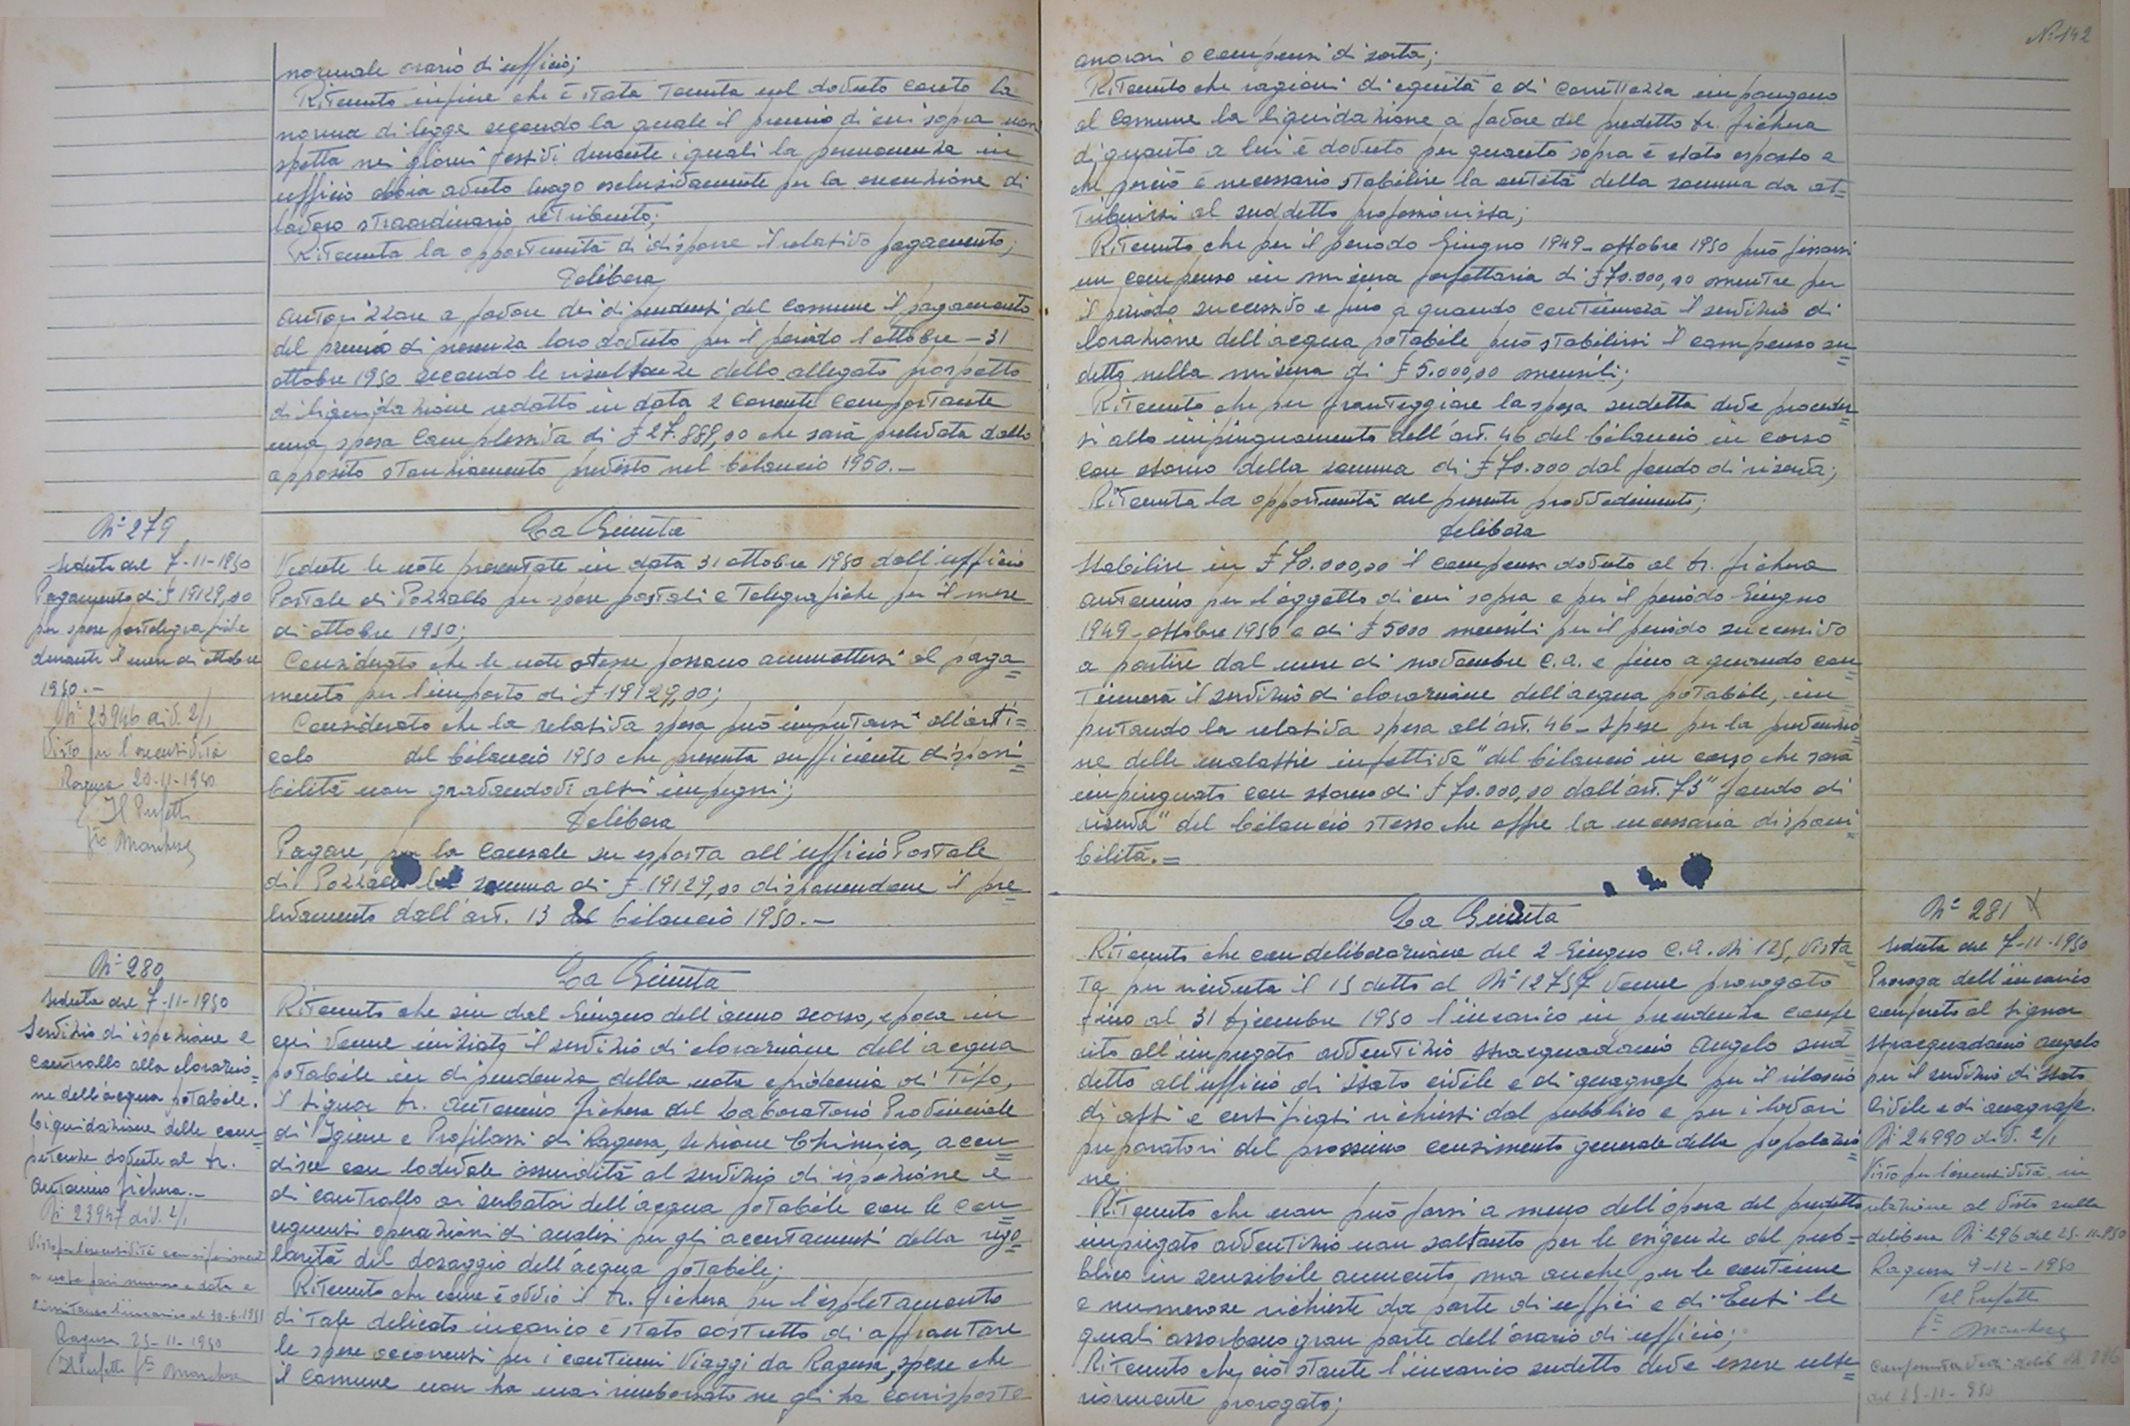 normale orario di ufficio;
Ritenuto infine che è stata tenuta nel dovuto conto la
norma di legge secondo la quale il premio di cui sopra non
spetta nei giorni festivi durante i quali la permanenza in
ufficio abbia avuto luogo esclusivamente per la esecuzione di
lavoro straordinario retribuito;
Ritenuta la opportunità di disporre il relativo pagamento;
Delibera
Autorizzare a favore dei dipendenti del Comune il pagamento
del premio di presenza loro dovuto per il periodo 1 ottobre - 31
ottobre 1950 secondo le risultanze dello allegato prospetto
di liquidazione redatto in data 2 corrente comportante
una spesa complessiva di £ 27.889,00 che sarà prelevata dallo
apposito stanziamento previsto nel bilancio 1950.-
N° 279
Seduta del 7-11-1950
Pagamento di £ 19129,00
per spese postelegrafiche
durante il mese di ottobre
1950.-
N° 23946 div. 2/1
Visto per l'esecutività
Ragusa 20-11-1950
Il Prefetto
f.to Marchese
La Giunta
Vedute le note presentate in data 31 ottobre 1950 dall'ufficio
Postale di Pozzallo per spese postali e telegrafiche per il mese
di ottobre 1950;
Considerato che le note stesse possono ammettersi al paga=
mento per l'importo di £ 19129,00;
Considerato che la relativa spesa può imputarsi all'arti=
colo del bilancio 1950 che presenta sufficiente disponi=
bilità non gravandovi altri impegni;
Delibera
Pagare, per la causale su esposta all'ufficio Postale
di Pozzallo la somma di £ 19129,00 disponendone il pre=
levamento dall'art. 13 del bilancio 1950.-
N° 280
Seduta del 7-11-1950
Servizio di ispezione e
controllo alla clorazio=
ne dell'acqua potabile.
Liquidazione delle com=
petenze dovute al Dr.
Antonino Fichera.-
N° 23947 div. 2/1
Visto per l'esecutività con riferimento
a nota pari numero e data e
limitando l'incarico al 30-6-1951
Ragusa 25-11-1950
Il Prefetto f.to Marchese
La Giunta
Ritenuto che sin dal Giugno dell'anno scorso, epoca in
cui venne iniziato il servizio di clorazione dell'acqua
potabile in dipendenza della nota epidemia di Tifo,
il Signor Dr. Antonino Fichera del Laboratorio Provinciale
di Igiene e Profilassi di Ragusa, Sezione Chimica, accu=
disce con lodevole assiduità al servizio di ispezione e
di controllo ai serbatoi dell'acqua potabile con le con=
seguenti operazioni di analisi per gli accertamenti della rego=
larità del dosaggio dell'acqua potabile;
Ritenuto che come è ovvio il Dr. Fichera per l'espletamento
di tale delicato incarico è stato costretto di affrontare
le spese occorrenti per i continui viaggi da Ragusa, spese che
il Comune non ha mai rimborsato ne gli ha corrisposto
N° 142
onorari o compensi di sorta;
Ritenuto che ragioni di equità e di correttezza impongono
al Comune la liquidazione a favore del predetto Dr. Fichera
di quanto a lui è dovuto per quanto sopra è stato esposto e
che perciò è necessario stabilire la entità della somma da at=
tribuirsi al suddetto professionista;
Ritenuto che per il periodo Giugno 1949 - ottobre 1950 può fissarsi
un compenso in misura forfettaria di £ 70.000,00 mentre per
il periodo successivo e fino a quando continuerà il servizio di
clorazione dell'acqua potabile può stabilirsi il compenso su=
detto nella misura di £ 5.000,00 mensili;
Ritenuto che per fronteggiare la spesa sudetta deve proceder=
si allo impinguamento dell'art. 46 del bilancio in corso
con storno della somma di £ 70.000 dal fondo di riserva;
Ritenuta la opportunità del presente provvedimento;
Delibera
Stabilire in £ 70.000,00 il compenso dovuto al Dr. Fichera
Antonino per l'oggetto di cui sopra e per il periodo Giugno
1949 - ottobre 1950 e di £ 5000 mensili per il periodo successivo
a partire dal mese di novembre c.a. e fino a quando con=
tinuerà il servizio di clorazione dell'acqua potabile, im=
putando la relativa spesa all'art. 46 - spese per la prevenzio=
ne delle malattie infettive" del bilancio in corso che sarà
impinguato con storno di £ 70.000,00 dall'art. 73 "fondo di
riserva" del bilancio stesso che offre la necessaria disponi=
bilità.=
La Giunta
Ritenuto che con deliberazione del 2 Giugno c.a. N° 125, vista=
ta per ricevuta il 15 detto al N° 12757 venne prorogato
fino al 31 Dicembre 1950 l'incarico in precedenza confe=
rito all'impiegato avventizio Stracquadanio Angelo sud=
detto all'ufficio di Stato civile e di anagrafe per il rilascio
di atti e certificati richiesti dal pubblico e per i lavori
preparatori del prossimo censimento generale della popolazio=
ne;
Ritenuto che non può farsi a meno dell'opera del predetto
impiegato avventizio non soltanto per le esigenze del pub=
blico in sensibile aumento, ma anche per le continue
e numerose richieste da parte di uffici e di Enti le
quali assorbono gran parte dell'orario di ufficio;
Ritenuto che, ciò stante l'incarico sudetto deve essere ulte=
riormente prorogato;
N° 281 X
Seduta del 7-11-1950
Proroga dell'incarico
conferito al Signor
Stracquadanio Angelo
per il servizio di Stato
Civile e di anagrafe.
N° 24990 div. 2/1
Visto per l'esecutività in
relazione al visto sulla
delibera N° 296 del 25-11-950
Ragusa 9-12-1950
Il Prefetto
f.to Marchese
Confermata vedi delib. N° 296
del 25-11-950